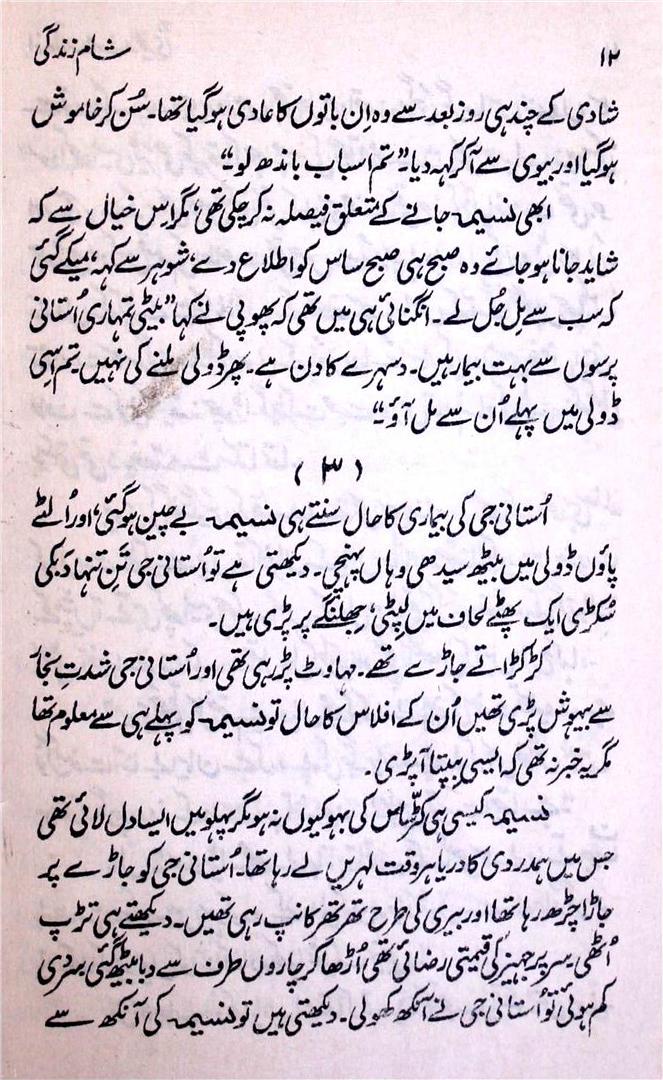 ۱۲
شام زندگی
شادی کے چند ہی روز بعد سے وہ اِن باتوں کا عادی ہوگیا تھا۔ سُن کر خاموش
ہوگیا اور بیوی سے آکر کہہ دیا۔ "تم اسباب باندھ لو۔"
ابھی نسیمہ جانے کے متعلق فیصلہ نہ کرچکی تھی، مگر اِس خیال سے کہ
شاید جانا ہوجائے وہ صبح ہی صبح ساس کو اطلاع دے، شوہر سے کہہ، میکے گئی
کہ سب سے مِل جُل لے۔ انگنائی ہی میں تھی کہ پھوپی نے کہا "بیٹی تمہاری اُستانی
پرسوں سے بہت بیمار ہیں۔ دسہرے کا دن ہے۔ پھر ڈولی ملنے کی نہیں۔ تم اِسی
ڈولی میں پہلے اُن سے مل آؤ۔"
(۳)
اُستانی جی کی بیماری کا حال سنتے ہی نسیمہ بے چین ہوگئی، اور اُلٹے
پاؤں ڈولی میں بیٹھ سیدھی وہاں پہنچی۔ دیکھتی ہے تو اُستانی جی تَنِ تنہا دَبکی
سُکڑی ایک پھٹے لحاف میں لپٹی، جِھلنگے پر پڑی ہیں۔
کڑکڑاتے جاڑے تھے۔ مہاوٹ پڑ رہی تھی اور اُستانی جی شدتِ بخار
سے بیہوش پڑی تھیں اُن کے افلاس کا حال تو نسیمہ کو پہلے ہی سے معلوم تھا
مگر یہ خبر نہ تھی کہ ایسی بپتا آپڑی۔
نسیمہ کیسی ہی کٹّر ساس کی بہو کیوں نہ ہو مگر پہلو میں ایسا دل لائی تھی
جس میں ہمدردی کا دریا ہر وقت لہریں لے رہا تھا۔ اُستانی جی کو جاڑے پر
جاڑا چڑھ رہا تھا اور بیری کی طرح تھر تھر کانپ رہی تھیں۔ دیکھتے ہی تڑپ
اُٹھی سر پر جہیز کی قیمتی رضائی تھی اُڑھا کر چاروں طرف سے دبا بیٹھ گئی سردی
کم ہوئی تو اُستانی جی نے آنکھ کھولی۔ دیکھتی ہیں تو نسیمہ کی آنکھ سے